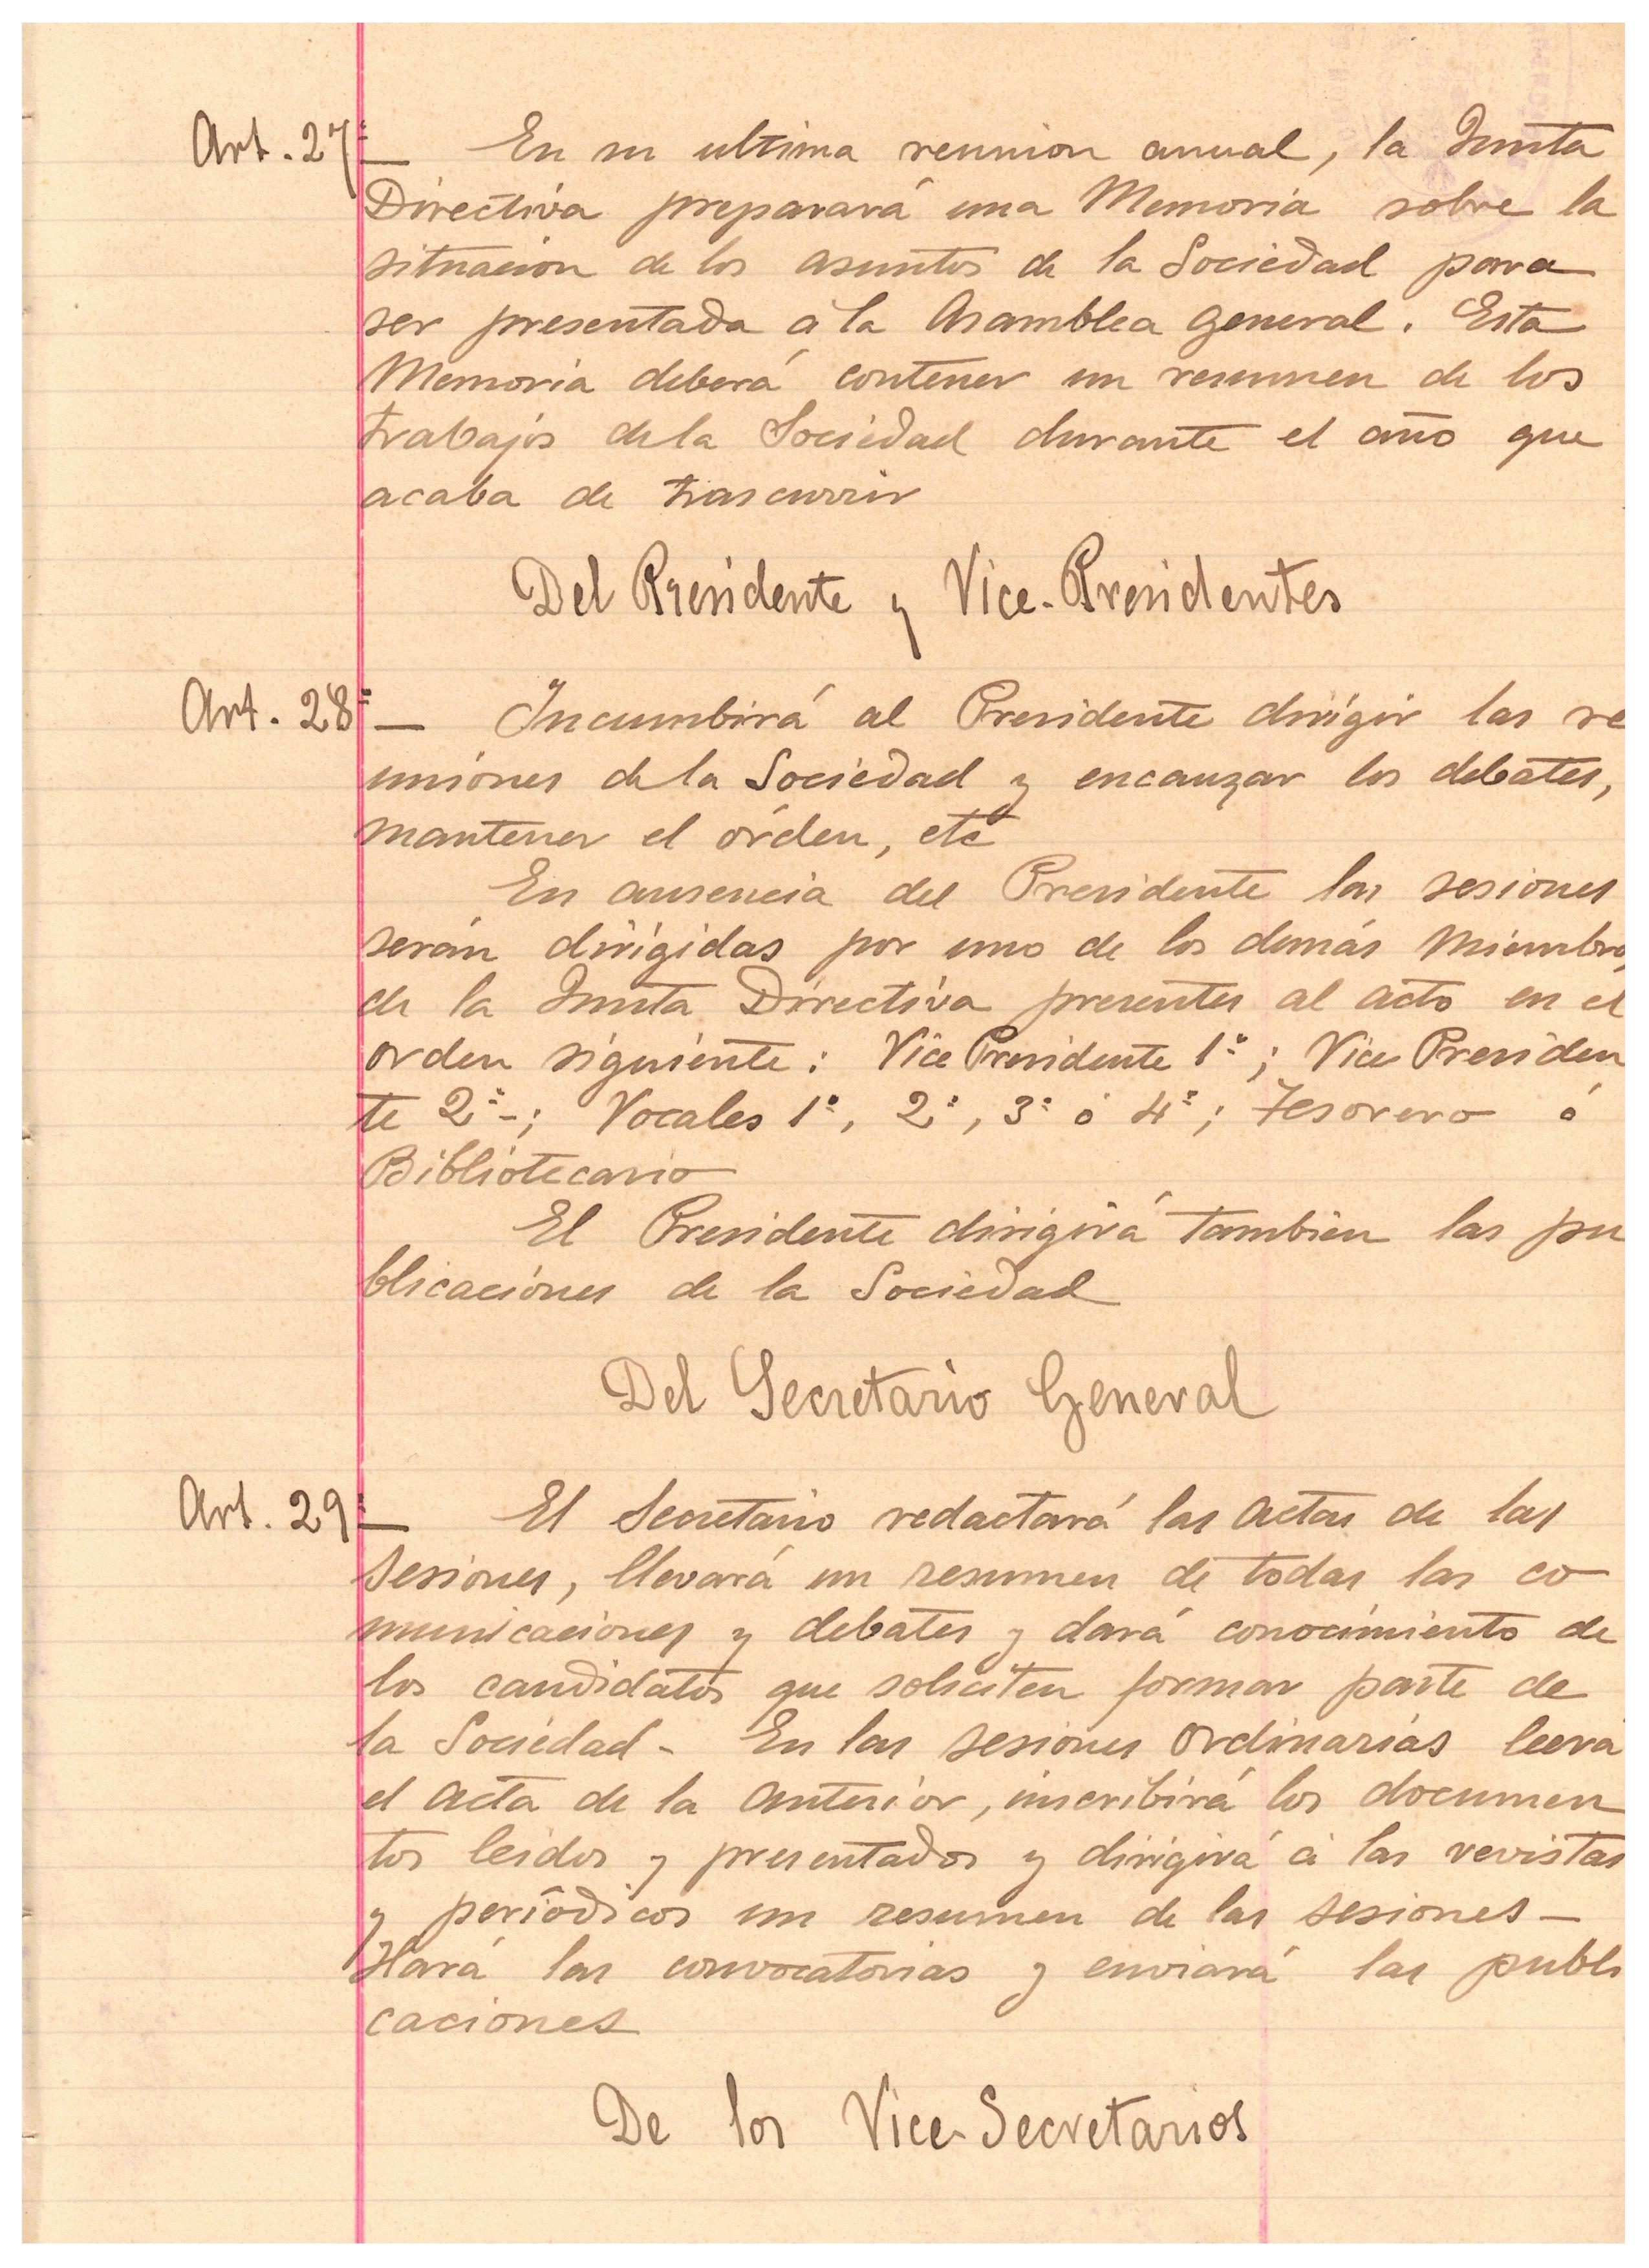 Art. 27º — En su ultima reunion anual, la Junta
Directiva preparará una Memoria sobre la
situacion de los asuntos de la Sociedad para
ser presentada á la Asamblea general. Esta
Memoria deberá contener un resumen de los
trabajos de la Sociedad durante el año que
acaba de trascurrir
Del Presidente y Vice-Presidentes
Art. 28º — Incumbirá al Presidente dirigir las re
uniones de la Sociedad y encauzar los debates,
mantener el órden, etc
En ausencia del Presidente las sesiones
serán dirigidas por uno de los demás Miembros
de la Junta Directiva presentes al acto en el
orden siguiente: Vice Presidente 1º; Vice Presiden
te 2º-; Vocales 1º, 2º, 3º ó 4º; Tesorero ó
Bibliotecario
El Presidente dirigirá tambien las pu
blicaciones de la Sociedad
Del Secretario General
Art. 29º — El Secretario redactará las actas de las
sesiones, llevará un resumen de todas las co
municaciones y debates y dará conocimiento de
los candidatos que soliciten formar parte de
la Sociedad - En las sesiones ordinarias leera
el acta de la anterior, inscribirá los documen
tos leidos y presentados y dirigirá á las revistas
y periódicos un resumen de las sesiones —
Hará las convocatorias y enviará las publi
caciones
De los Vice-Secretarios